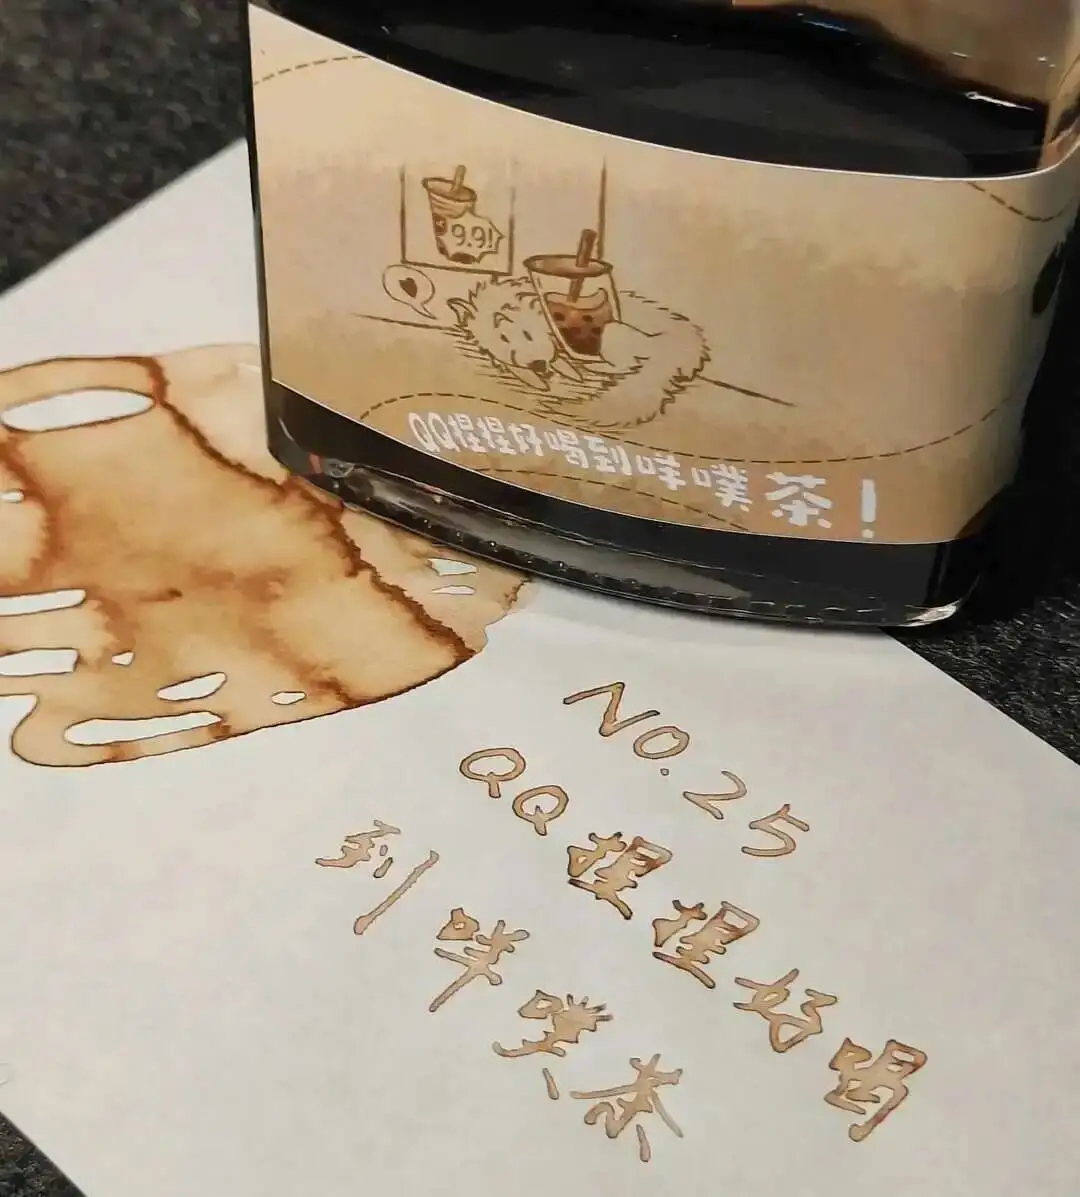 9.9!
QQ捏捏好喝到咩噗茶!
NO.25
QQ捏捏好喝
到咩噗茶